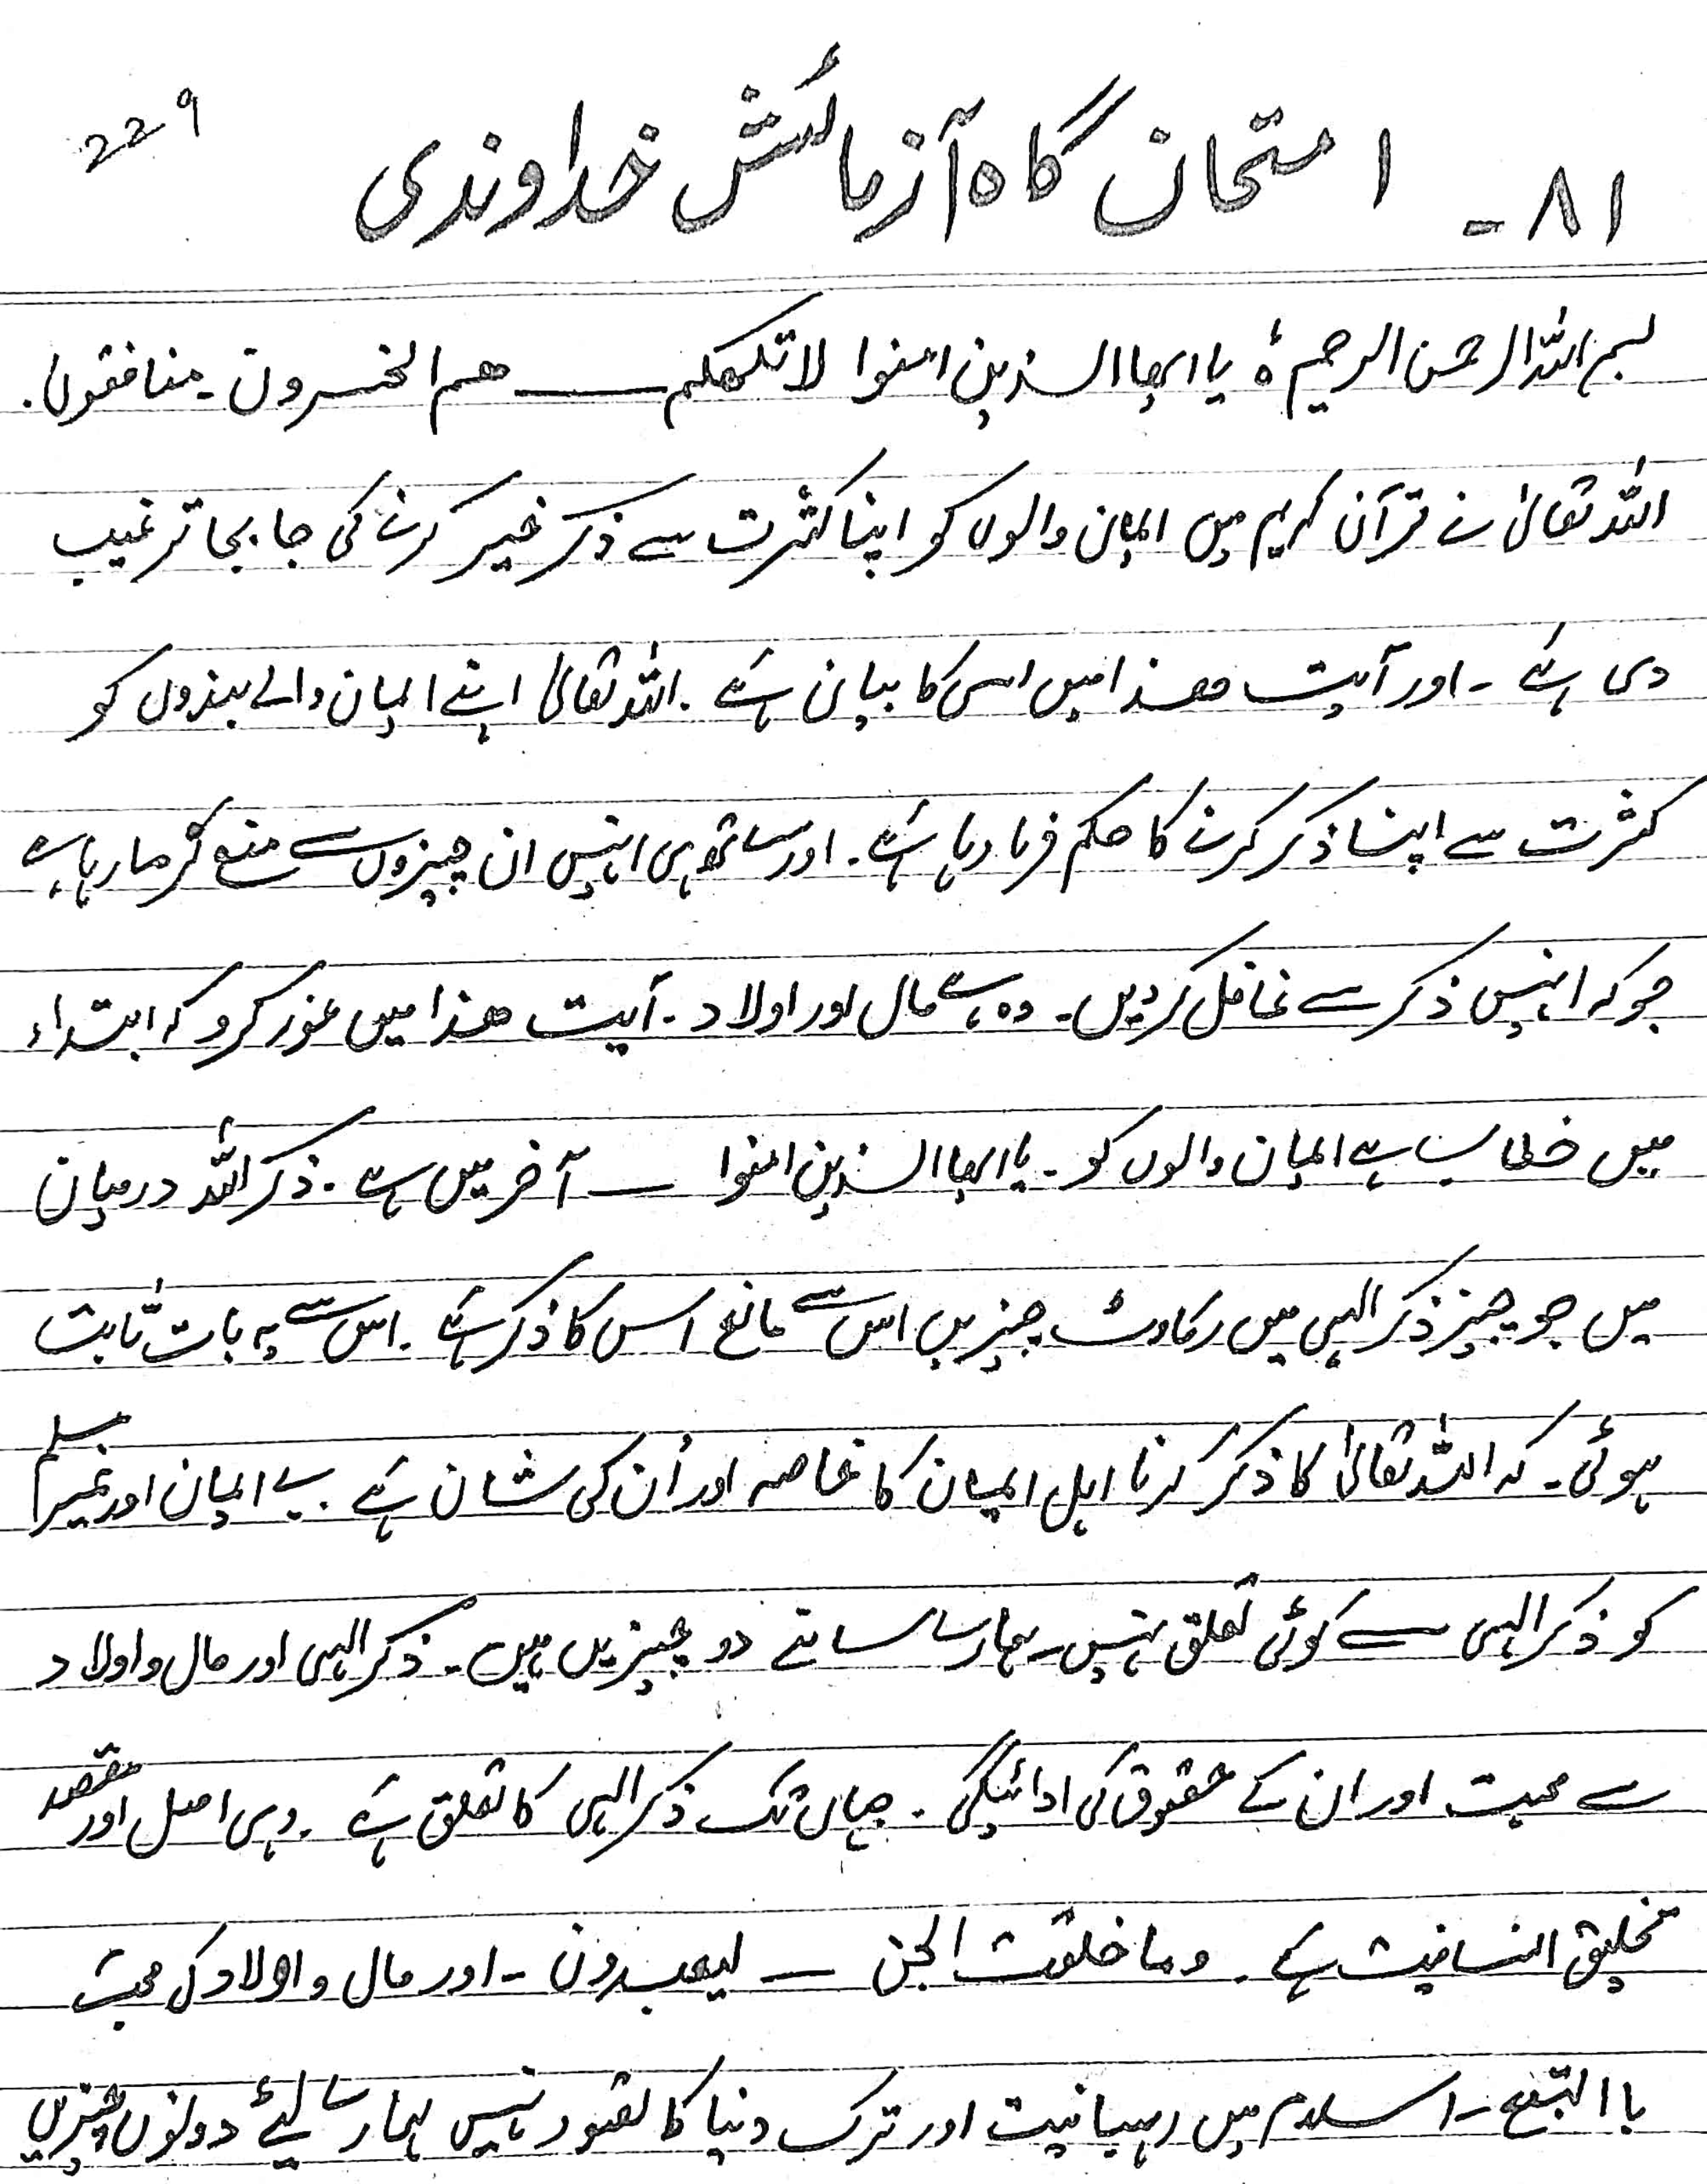 229
۸۱۔ امتحان گاہ آزمائش خداوندی
بسم اللہ الرحمن الرحیم ہ یا ایھا الذین امنوا لا تلھکم ــــ ھم الخسرون ۔ منافقون۔
اللہ تعالیٰ نے قرآن کریم میں ایمان والوں کو اپنا کثرت سے ذکر خیر کرنے کی جا بجا ترغیب
دی ہے ۔ اور آیت ھذا میں اسی کا بیان ہے ۔ اللہ تعالیٰ اپنے ایمان والے بندوں کو
کثرت سے اپنا ذکر کرنے کا حکم فرما رہا ہے ۔ اور ساتھ ہی انہیں ان چیزوں سے منع فرما رہا ہے
جو کہ انہیں ذکر سے غافل کر دیں ۔ وہ ہے مال اور اولاد ۔ آیت ھذا میں غور کرو کہ ابتداء
میں خطاب ہے ایمان والوں کو ۔ یا ایھا الذین امنوا ــــ آخر میں ہے ۔ ذکر اللہ درمیان
میں جو چیز ذکر الہی میں رکاوٹ چیزیں اس سے مانع اس کا ذکر ہے ۔ اس سے یہ بات ثابت
ہوئی ۔ کہ اللہ تعالیٰ کا ذکر کرنا اہل ایمان کا خاصہ اور اُن کی شان ہے ۔ بے ایمان اور غیر مسلم
کو ذکر الہی سے کوئی تعلق نہیں ۔ ہمارے سامنے دو چیزیں ہیں ۔ ذکر الہی اور مال و اولاد
سے محبت اور ان کے حقوق کی ادائیگی ۔ جہاں تک ذکر الہی کا تعلق ہے ۔ وہی اصل اور مقصد
تخلیق انسانیت ہے ۔ وما خلقت الجن ــــ لیعبدون ۔ اور مال و اولاد کی محبت
با التبع ۔ اسلام میں رہبانیت اور ترک دنیا کا تصور نہیں ہمارے لیئے دونوں چیزیں